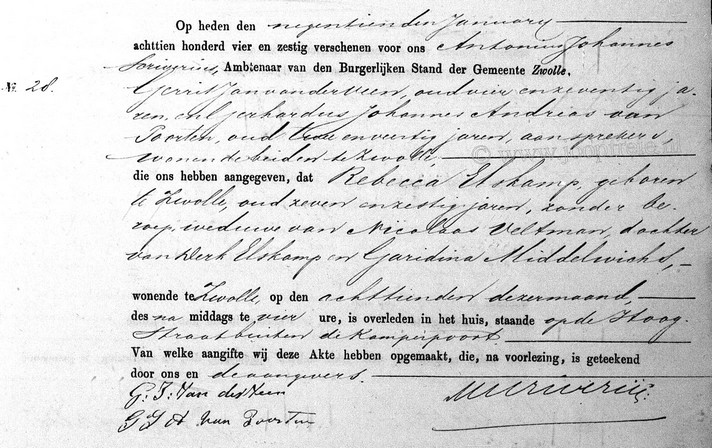 Op heden den negentienden January
achttien honderd vier en zestig verschenen voor ons Antonius Johannes
Scriverius, Ambtenaar van den Burgerlijken Stand der Gemeente Zwolle.
№. 28.
Gerrit Jan van der Veen, oud vier en zeventig ja-
ren, en Gerhardus Johannes Andrias van
Poorten, oud en veertig jaren, aansprekers,
wonende beiden te Zwolle.
die ons hebben aangegeven, dat Rebecca Elskamp, geboren
te Zwolle, oud zeven en zestig jaren, zonder be-
roep, weduwe van Nicolaas Veltman, dochter
van Derk Elskamp en Garidina Middelwichs,
wonende te Zwolle, op den achttienden dezer maand,
des na middags te vier ure, is overleden in het huis, staande op de Hoog-
straat buiten de Kamperpoort.
Van welke aangifte wij deze Akte hebben opgemaakt, die, na voorlezing, is geteekend
door ons en de aangevers.
G: J: Van der Veen
G J A van Poorten